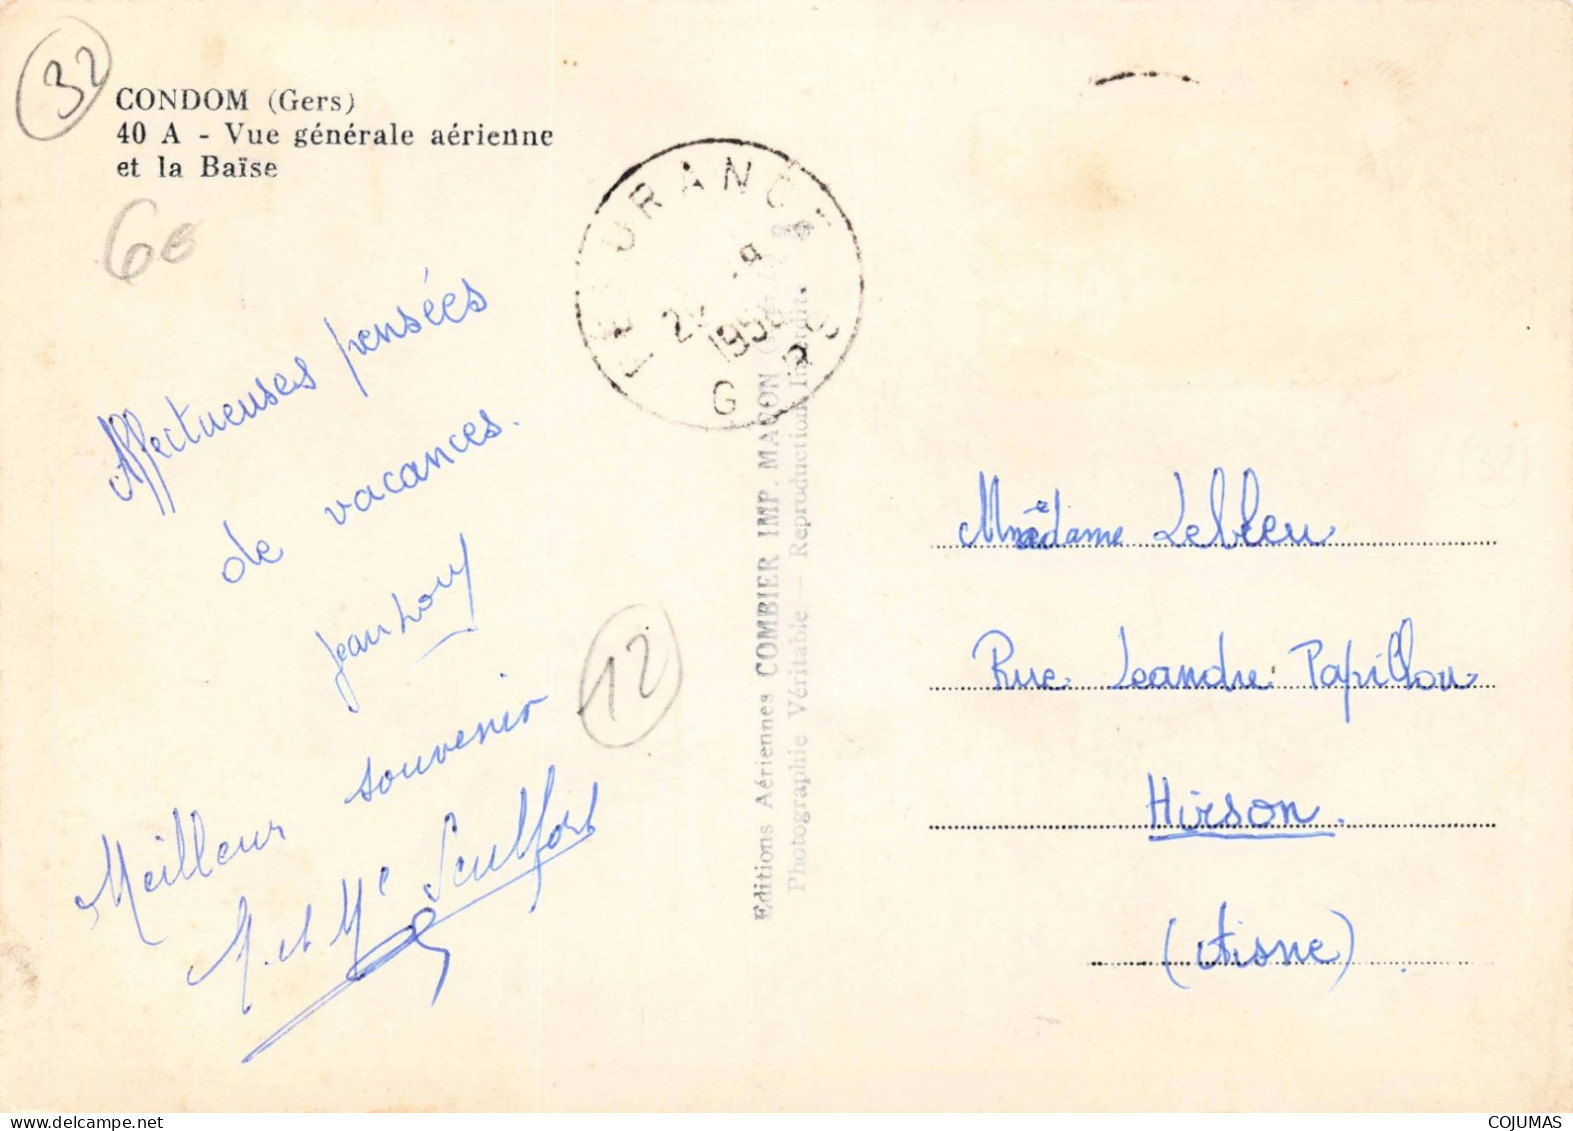 32
CONDOM (Gers)
40 A - Vue générale aérienne
et la Baïse
6€
Affectueuses pensées
de vacances.
Jean Louis
Meilleur souvenir
M. et Me Sculfort
12
FLEURANCE
1958
GERS
Editions Aériennes COMBIER IMP. MACON
Photographie Véritable — Reproduction Interdite
Madame Lebleu
Rue Leandre Papillon
Hirson.
(Aisne).
COJUMAS